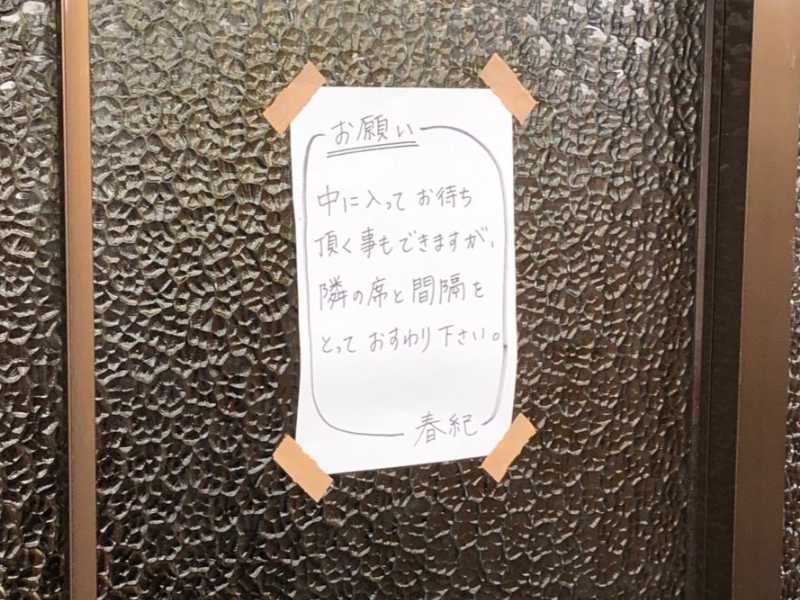 お願い
中に入ってお待ち
頂く事もできますが、
隣の席と間隔を
とっておすわり下さい。
春紀